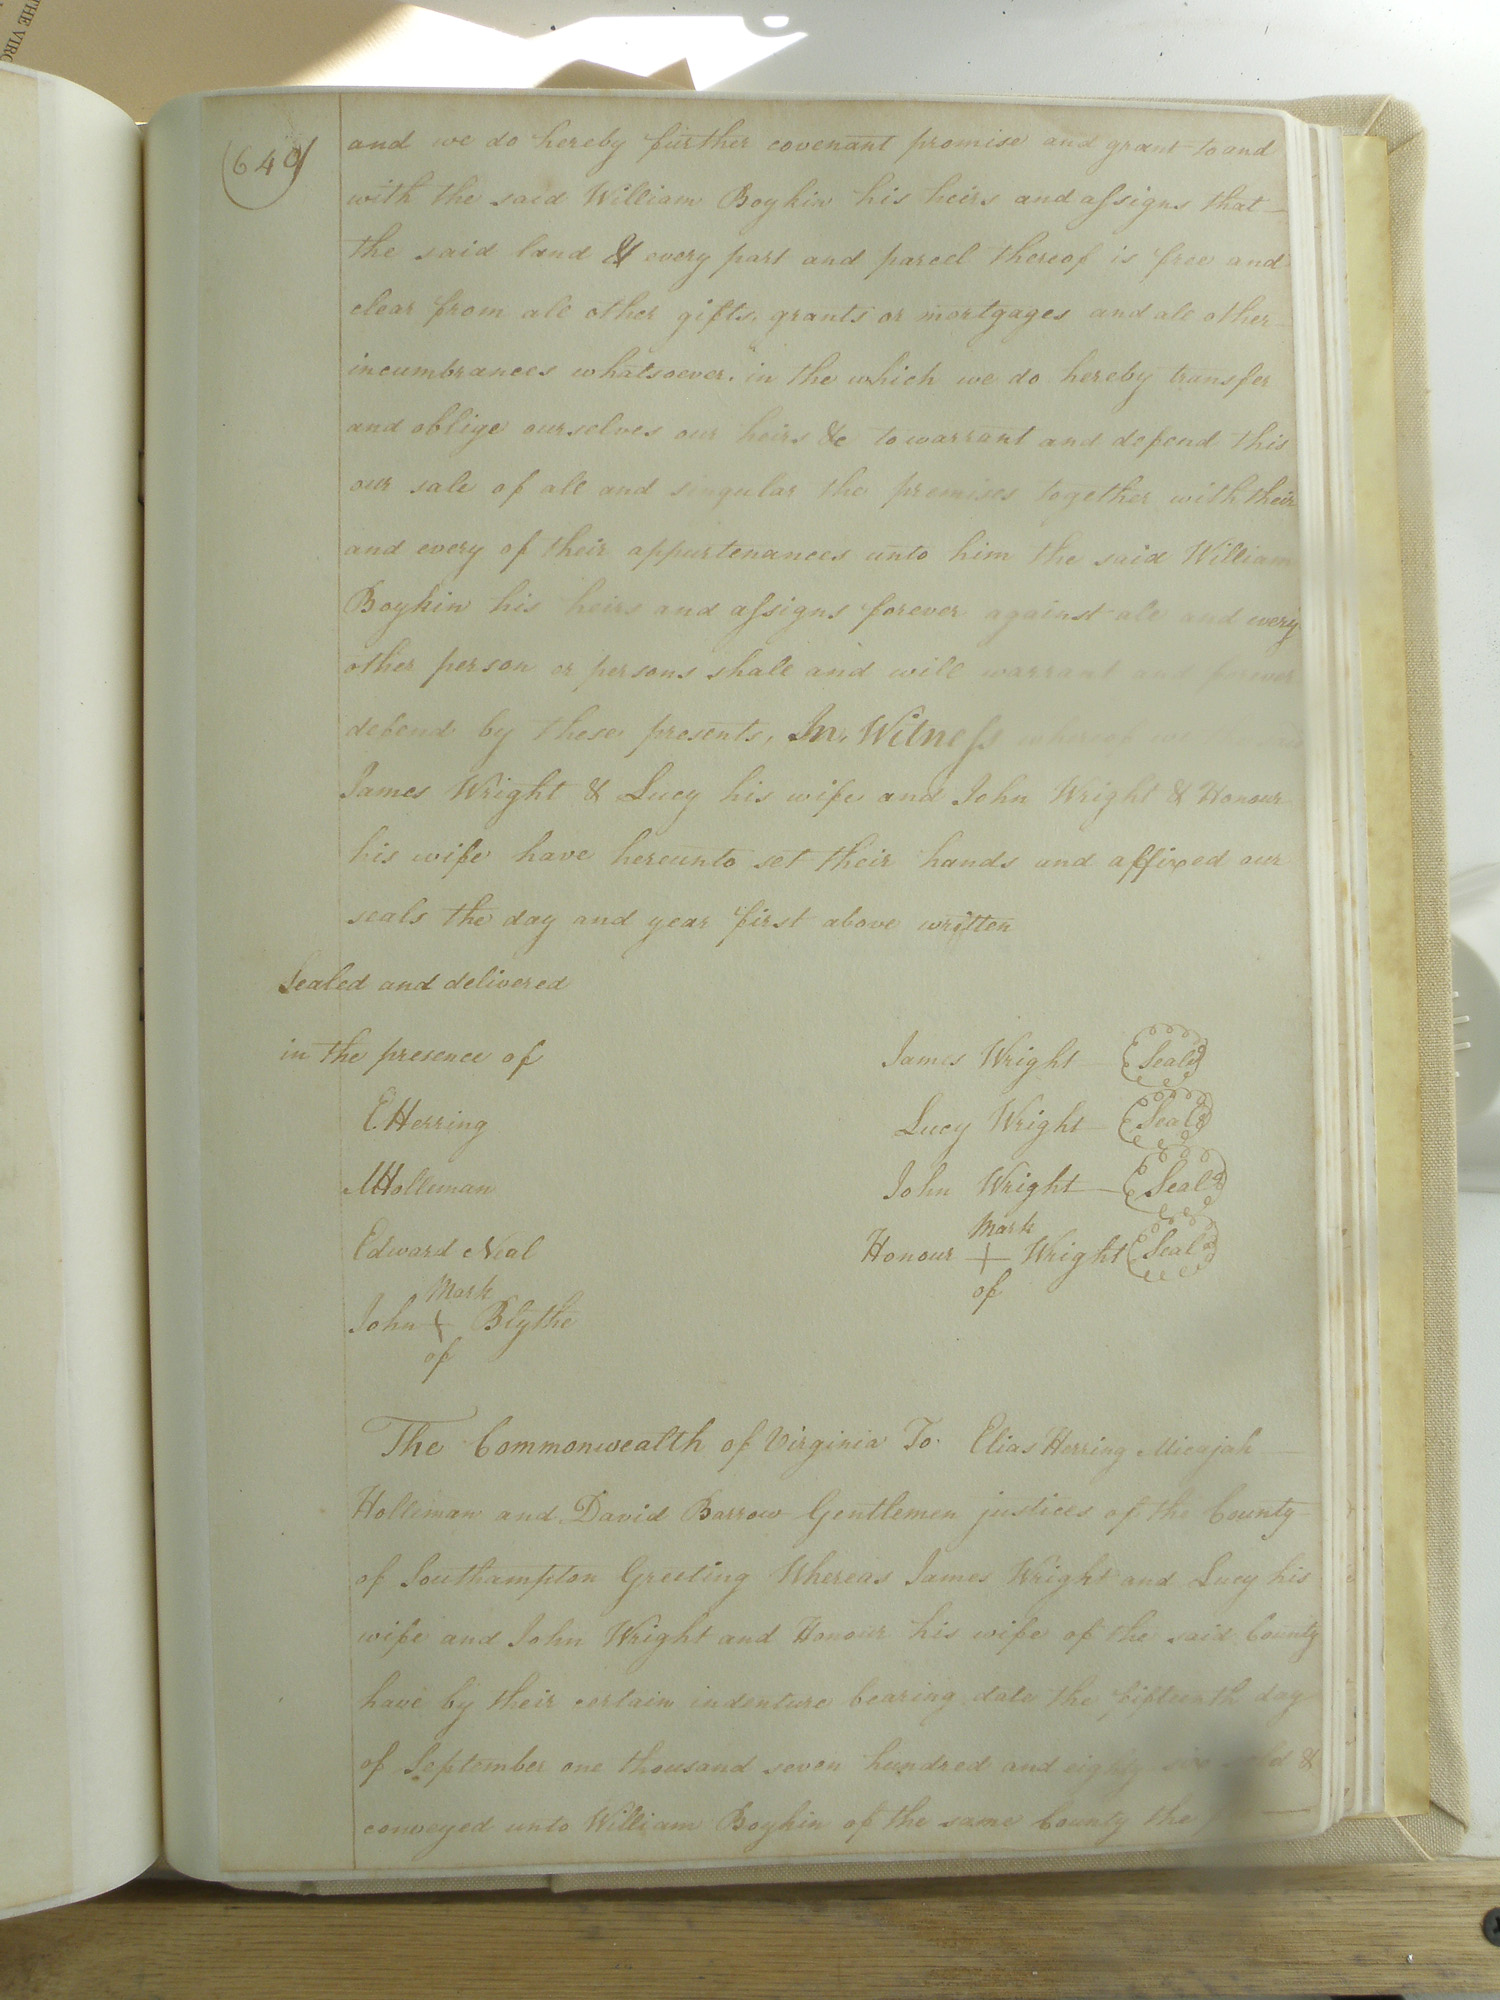 THE VIRG
640
and we do hereby further covenant promise and grant to and
with the said William Boykin his heirs and assigns that
the said land & every part and parcel thereof is free and
clear from all other gifts, grants or mortgages and all other
incumbrances whatsoever. in the which we do hereby transfer
and oblige ourselves our heirs &c to warrant and defend this
our sale of all and singular the premises together with their
and every of their appurtenances unto him the said William
Boykin his heirs and assigns forever against all and every
other person or persons shall and will warrant and forever
defend by these presents, In Witness whereof we
James Wright & Lucy his wife and John Wright & Honour
his wife have hereunto set their hands and affixed our
seals the day and year first above written
Sealed and delivered
in the presence of
James Wright Seal
E Herring
Lucy Wright Seal
M Holleman
John Wright Seal
Edward Neal
Mark
Honour + Wright Seal
of
Mark
John + Blythe
of
The Commonwealth of Virginia To Elias Herring Micajah
Holleman and David Barrow Gentlemen justices of the County
of Southampton Greeting Whereas James Wright and Lucy his
wife and John Wright and Honour his wife of the said County
have by their certain indenture bearing date the fifteenth day
of September one thousand seven hundred and eighty sold &
conveyed unto William Boykin of the same County the